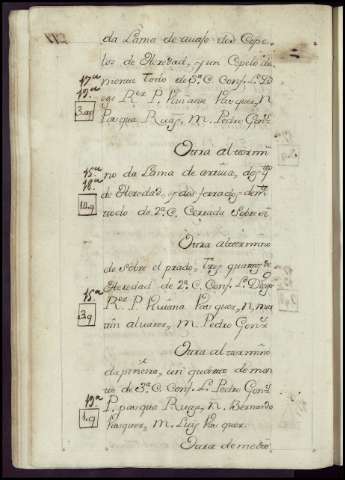 da Lama de avajo dos Cepe
los de Heredad, y un Cepelo de
menta todo de 3ª C. Conf. L. D
ego Rez P. Viviana Vazquez, N
Pasqua Ruza, M. Pedro Gonz
3.q
Otra al termi
no da Lama de arriva, dos
de Heredad, y dos ferrados de m
todo de 2ª C. Cerrada sobre si
10.q
Otra al termino
de sobre el prado, tres quartos de
Heredad de 2ª C. Conf. L. Diego
Rez P. Viviana Vazquez, N. ma
rtin alvarez, M. Pedro Gonz
3.q
Otra al termino
da pineira, un quarto de mon
te de 3ª C. Conf. L. Pedro Gonz
P. pasqua Ruza, N. Bernardo
Vazquez, M. Luis Vazquez
1.q
Otra de medio